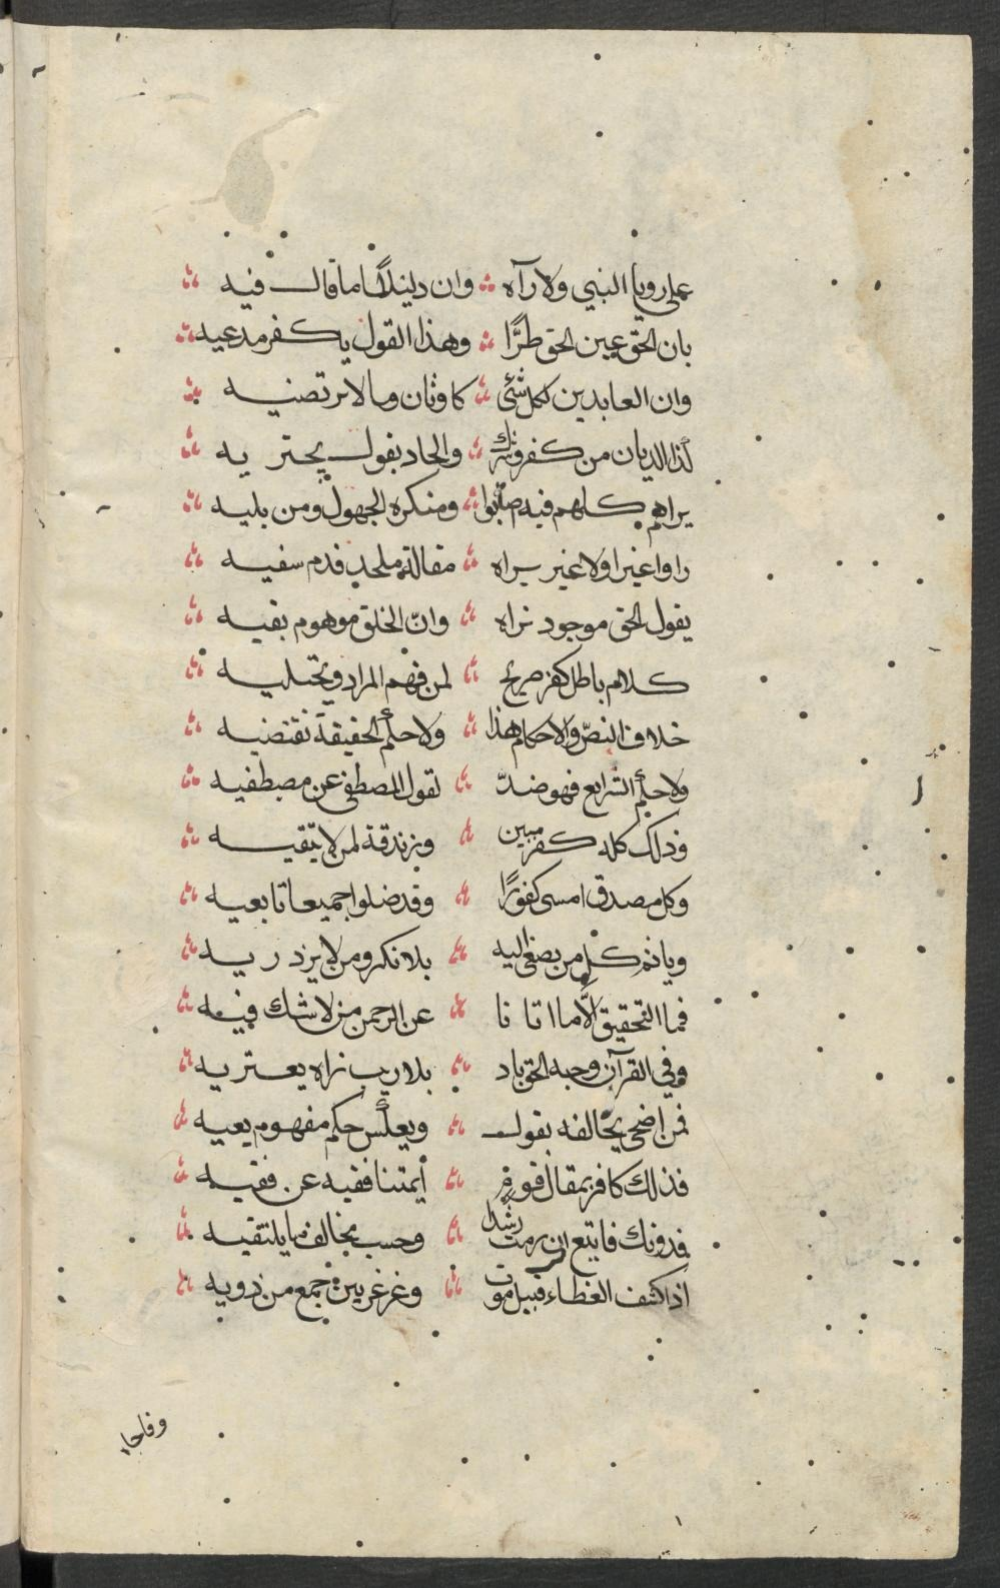 على رويا النبي ولا رآه ؞ وان دليلنا ما قال فيه
بان الحق عين الحق طرًّا ؞ وهذا القول يكفر مدعيه
وان العابدين لكل شئ ؞ كاوثان وما لا نرتضيه
والحاد بقول يحتريه
يراهم كلهم فيه صابوا ؞ ومنكره الجهول ومن يليه
راوا غيرا ولا غير يراه ؞ مقالة ملحد فدم سفيه
يقول الحق موجود نراه ؞ وانّ الخلق موهوم بقيه
كلام باطل كفر صريح ؞ لمن فهم المراد ويحتليه
خلاف النصّ والاحكام هذا ؞ ولا حكم الحقيقة نقتضيه
ولا حكم الشرايع فهو ضدّ ؞ لقول المصطفى عن مصطفيه
وذلك كله كفر مبين ؞ وزندقة لمن لا يتّقيه
وكل مصدق امسى كفورًا ؞ وقد ضلوا جميعا تابعيه
وياثم كل من يصغى اليه ؞ بلا نكر ومن لا يزدريه
فما التحقيق الّا ما اتانا ؞ عن الرحمن من لا شك فيه
وفي القرآن وجه الحق باد ؞ بلا ريب نراه يعتريه
فمن اضحى يخالفه بقول ؞ ويعكس حكم مفهوم يعيه
فذلك كافر بمقال قوم ؞ أيمتنا فقيه عن فقيه
فدونك فاتبع ان رمت رشدا ؞ وحسب مخالف ما يلتقيه
اذا كشف الغطاء قبيل موت ؞ وغرغر بين جمع من ذويه
وفاجا،